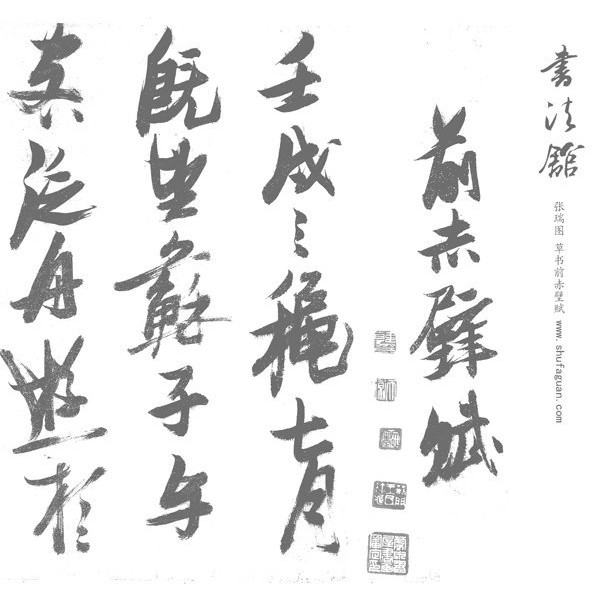 書法館
张瑞图 草书前赤壁赋 www.shufaguan.com
前赤壁賦
壬戌之穐七月
既望蘇子与
客泛舟遊於